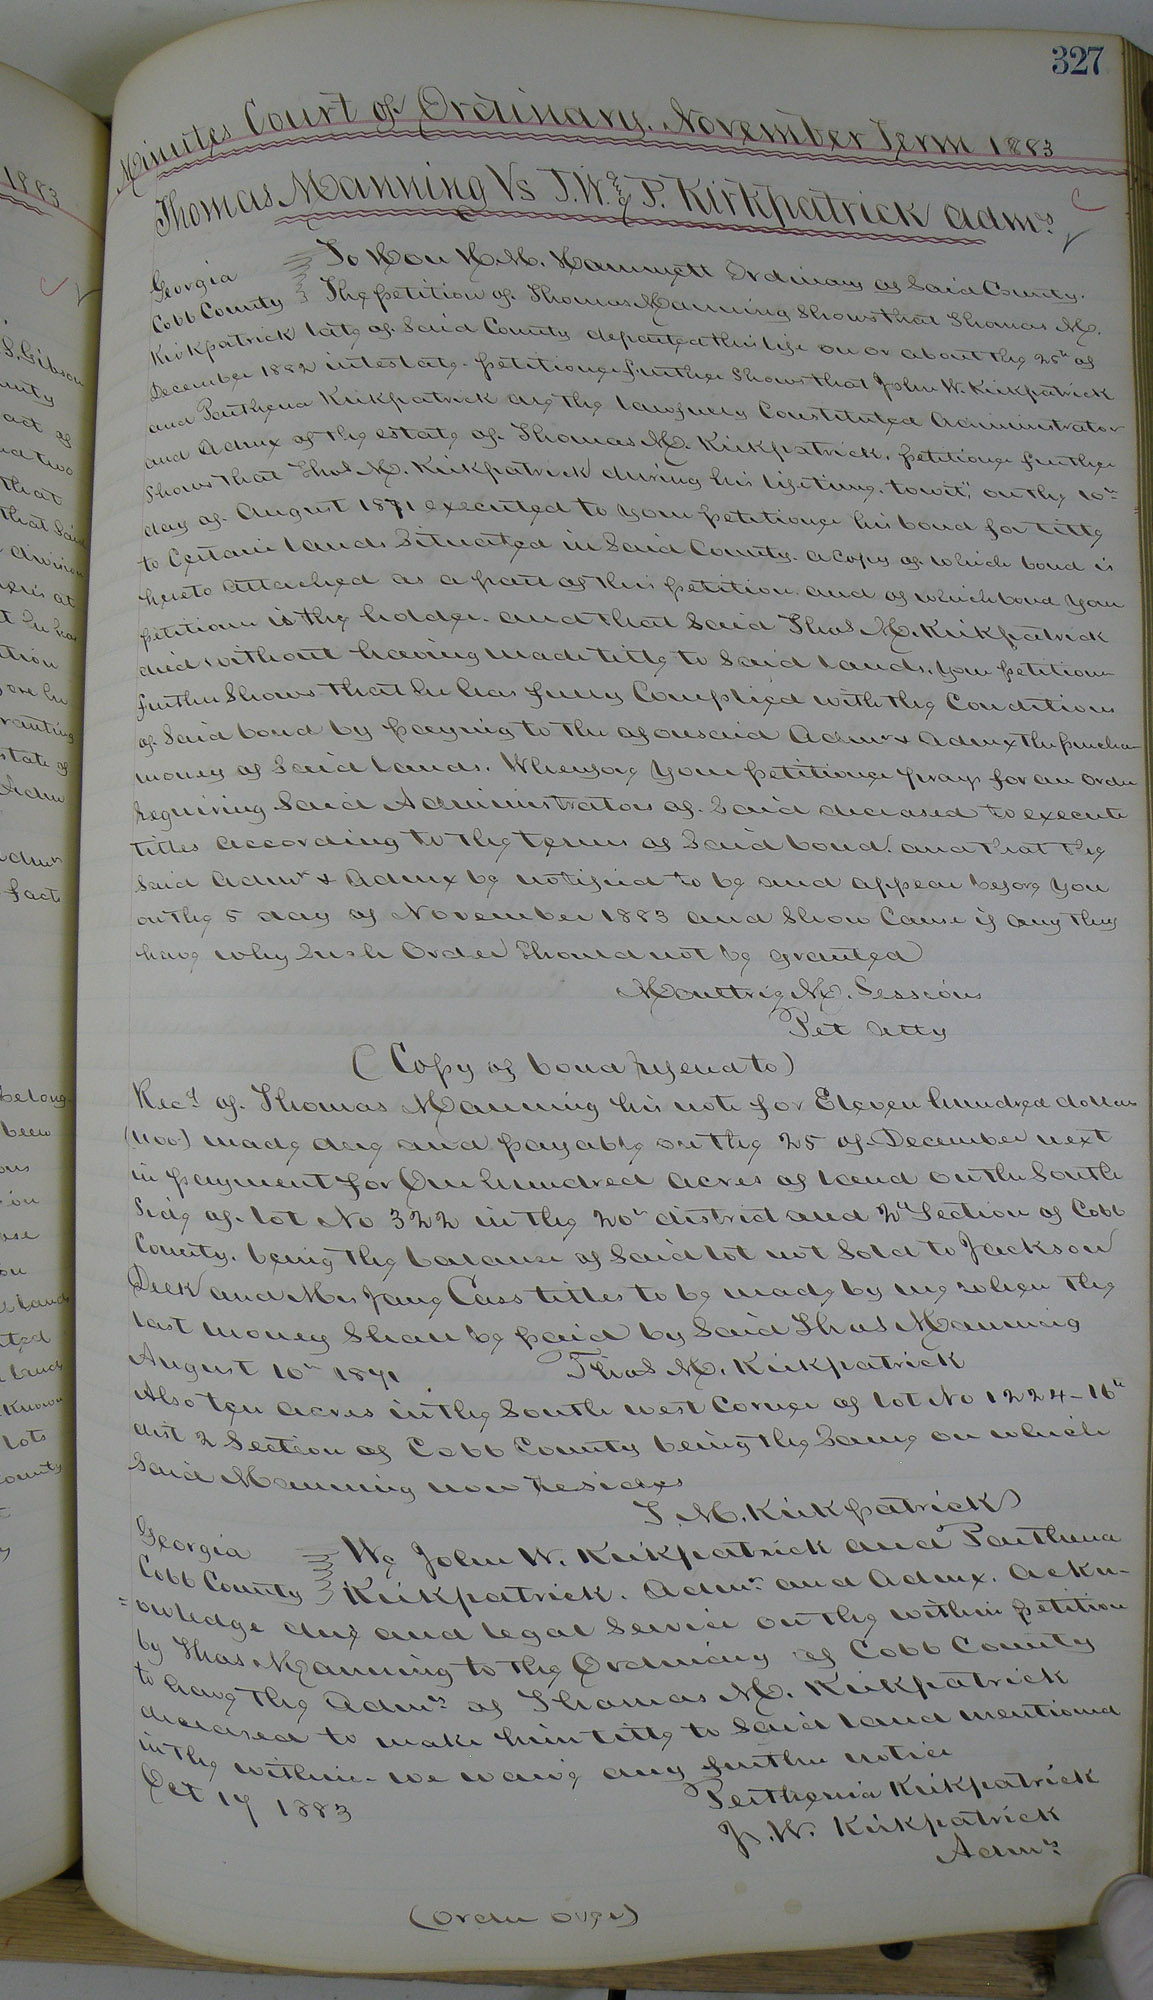 327
Minutes Court of Ordinary. November Term 1883
Thomas Manning Vs J. W. & P. Kirkpatrick admrs
Georgia
Cobb County
To Hon H. M. Hammett Ordinary of Said County.
The petition of Thomas Manning Shows that Thomas M.
Kirkpatrick late of Said County departed this life on or about the 25th of
December 1882 intestate. petitioner further Shows that John W. Kirkpatrick
and Parthena Kirkpatrick are the lawfully Constituted Administrator
and Admrx of the estate of Thomas M. Kirkpatrick. petitioner further
Shows that Thos M. Kirkpatrick during his lifetime. towit; on the 10th
day of August 1871 executed to your petitioner his bond for title
to Certain lands Situated in Said County. a copy of which bond is
hereto attached as a part of this petition. and of which bond your
petitioner is the holder. and that Said Thos M. Kirkpatrick
died without having made title to Said lands. Your petitioner
further Shows that he has fully Complied with the Conditions
of Said bond by paying to the aforesaid Admr & Admrx the purchase
money of Said lands. Wherefore Your petitioner prays for an order
requiring Said Administrators of Said deceased to execute
titles according to the terms of Said bond. and that the
Said Admr & Admrx be notified to be and appear before you
on the 5 day of November 1883 and Show Cause if any they
have why Such Order Should not be granted
Mouttrie M. Sessions
Pet Atty
(Copy of bond refered to)
Recd of Thomas Manning his note for Eleven hundred dollars
(1100) made due and payable on the 25 of December next
in payment for One hundred acres of land on the South
Side of lot No 322 in the 20th district and 2d Section of Cobb
County. being the balance of Said lot not Sold to Jackson
Deck and Mrs Jane Cass titles to be made by me when the
last money Shall be paid by Said Thos Manning
August 10th 1871 Thos M. Kirkpatrick
Also ten acres in the South west Corner of lot No 1224 - 16th
dist 2 Section of Cobb County being the Same on which
Said Manning now Resides
T. M. Kirkpatrick
Georgia
Cobb County
We John W. Kirkpatrick and Parthena
Kirkpatrick. Admr and Admrx. ackn-
=owledge due and legal Service on the within petition
by Thos Manning to the Ordinary of Cobb County
to have the Admrs of Thomas M. Kirkpatrick
deceased to make him title to Said land mentioned
in the within. we waive any further notice
Oct 17 1883
Perthenia Kirkpatrick
J. W. Kirkpatrick
Admrs
(Order over)